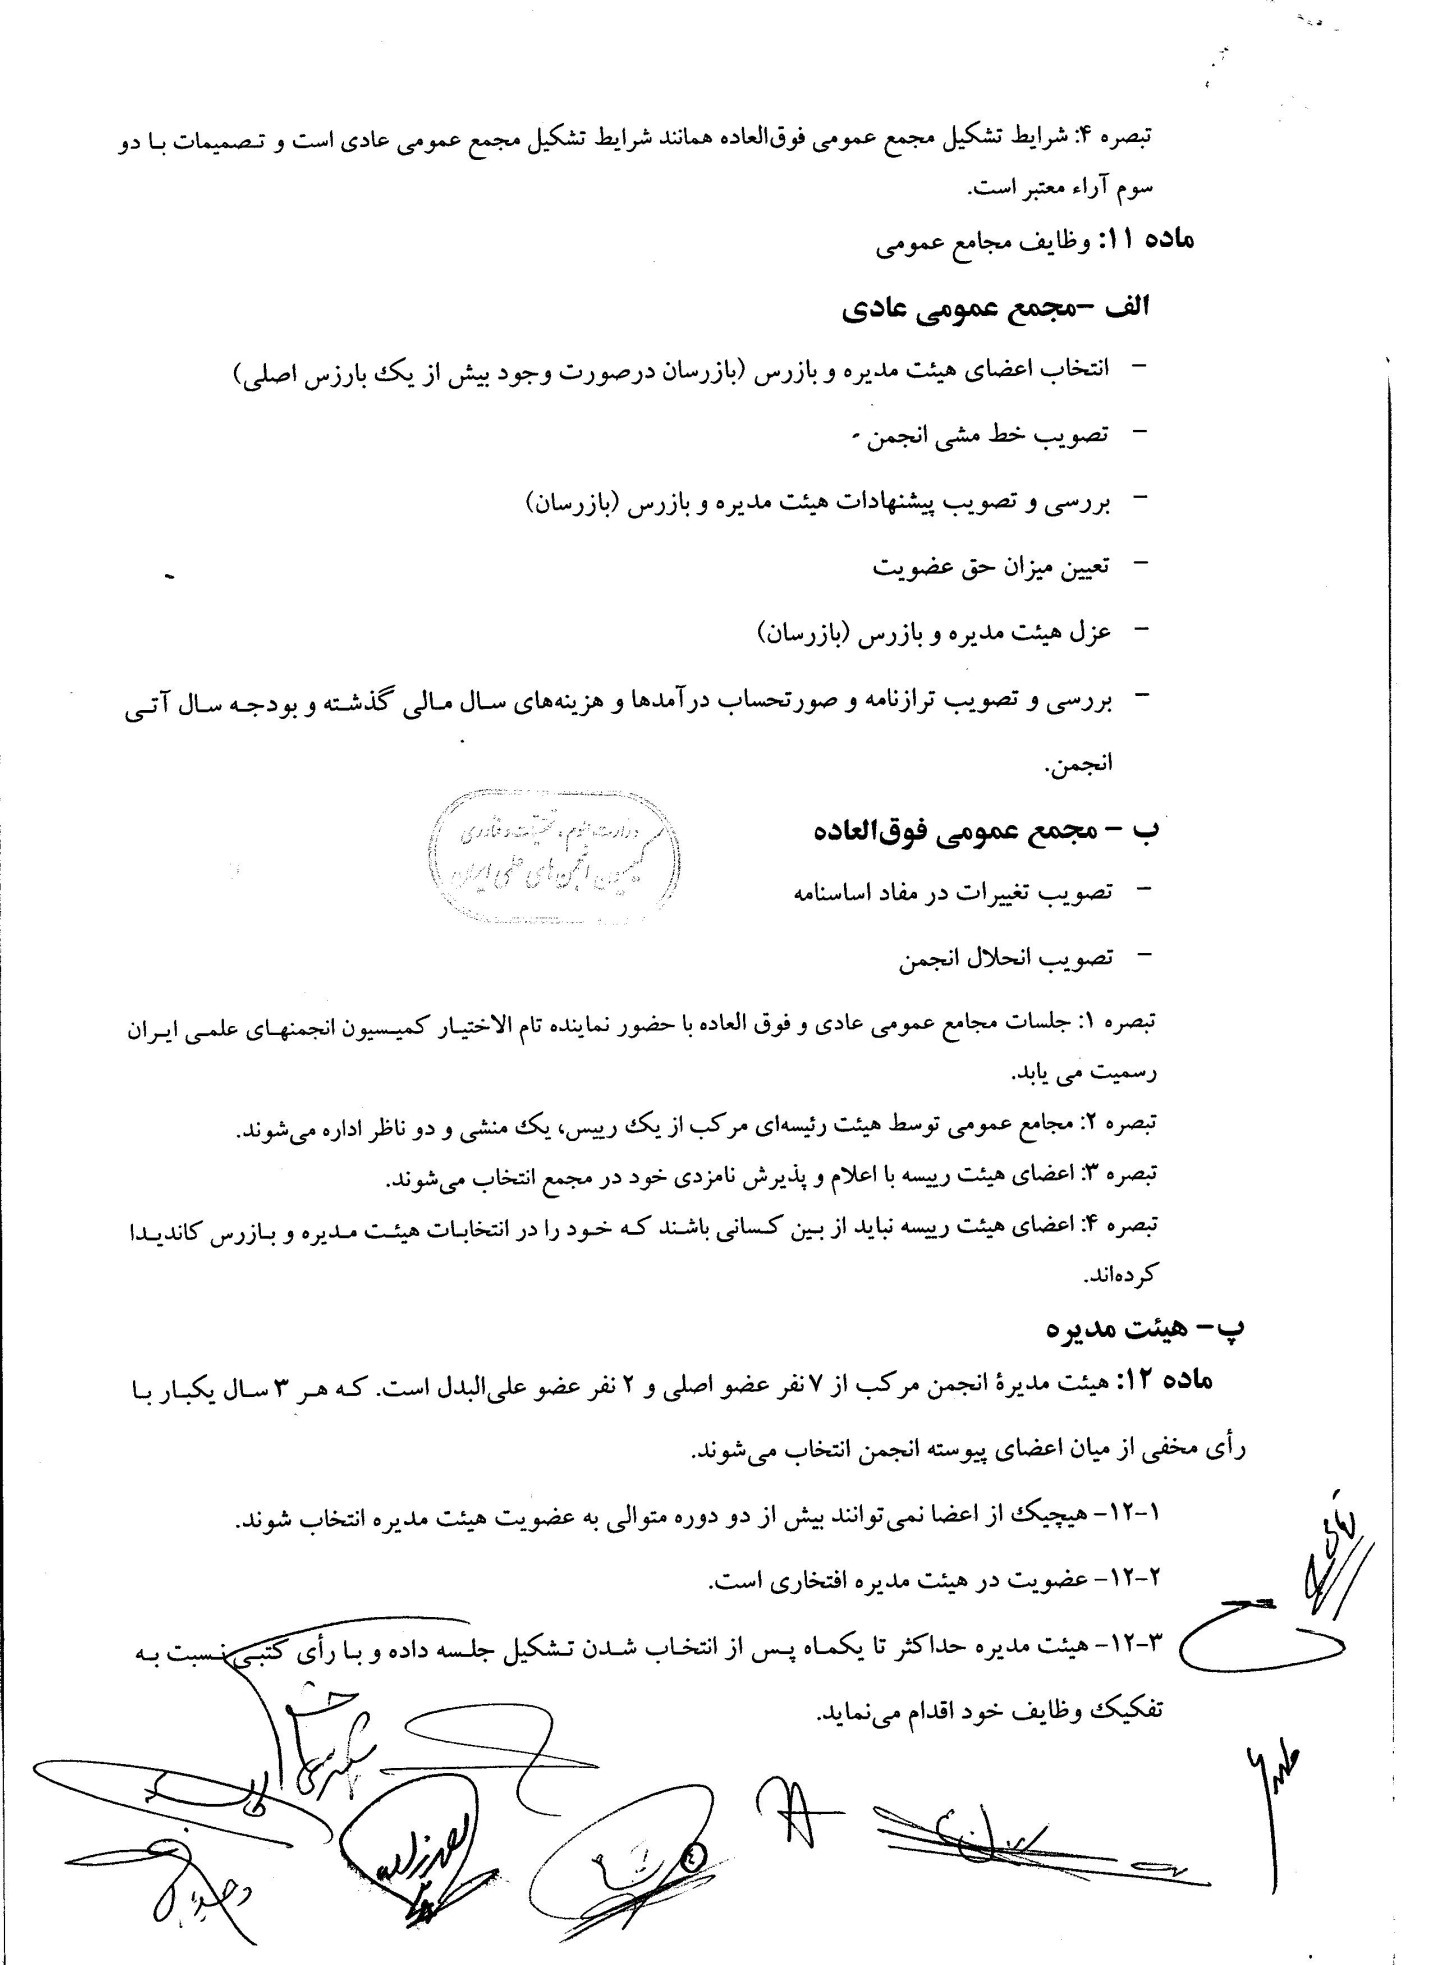 تبصره ۴: شرایط تشکیل مجمع عمومی فوق‌العاده همانند شرایط تشکیل مجمع عمومی عادی است و تصمیمات با دو
سوم آراء معتبر است.
ماده ۱۱: وظایف مجامع عمومی
الف –مجمع عمومی عادی
– انتخاب اعضای هیئت مدیره و بازرس (بازرسان درصورت وجود بیش از یک بارزس اصلی)
– تصویب خط مشی انجمن
– بررسی و تصویب پیشنهادات هیئت مدیره و بازرس (بازرسان)
– تعیین میزان حق عضویت
– عزل هیئت مدیره و بازرس (بازرسان)
– بررسی و تصویب ترازنامه و صورتحساب درآمدها و هزینه‌های سال مالی گذشته و بودجه سال آتی
انجمن.
وزارت علوم، تحقیقات و فناوری
کمیسیون انجمن‌های علمی ایران
ب – مجمع عمومی فوق‌العاده
– تصویب تغییرات در مفاد اساسنامه
– تصویب انحلال انجمن
تبصره ۱: جلسات مجامع عمومی عادی و فوق العاده با حضور نماینده تام الاختیار کمیسیون انجمنهای علمی ایران
رسمیت می یابد.
تبصره ۲: مجامع عمومی توسط هیئت رئیسه‌ای مرکب از یک رییس، یک منشی و دو ناظر اداره می‌شوند.
تبصره ۳: اعضای هیئت رییسه با اعلام و پذیرش نامزدی خود در مجمع انتخاب می‌شوند.
تبصره ۴: اعضای هیئت رییسه نباید از بین کسانی باشند که خود را در انتخابات هیئت مدیره و بازرس کاندیدا
کرده‌اند.
پ– هیئت مدیره
ماده ۱۲: هیئت مدیرهٔ انجمن مرکب از ۷ نفر عضو اصلی و ۲ نفر عضو علی‌البدل است. که هر ۳ سال یکبار با
رأی مخفی از میان اعضای پیوسته انجمن انتخاب می‌شوند.
۱۲-۱– هیچیک از اعضا نمی‌توانند بیش از دو دوره متوالی به عضویت هیئت مدیره انتخاب شوند.
۱۲-۲– عضویت در هیئت مدیره افتخاری است.
۱۲-۳– هیئت مدیره حداکثر تا یکماه پس از انتخاب شدن تشکیل جلسه داده و با رأی کتبی نسبت به
تفکیک وظایف خود اقدام می‌نماید.